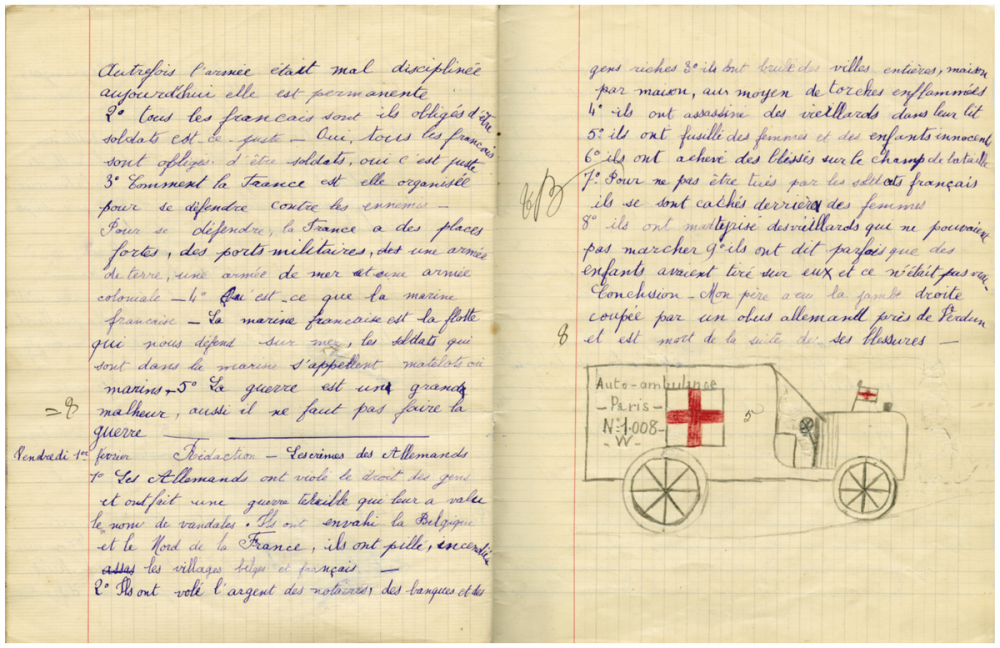 Autrefois l'armée était mal disciplinée
aujourd'hui elle est permanente
2° tous les francais sont ils obligés d'être
soldats est-ce juste - Oui, tous les francais
sont obligés d'être soldats, oui c'est juste
3° Comment la France est elle organisée
pour se défendre contre les ennemis -
Pour se défendre, la France a des places
fortes, des ports militaires, des une armée
de terre, une armée de mer et une armée
coloniale - 4° Qu'est-ce que la marine
francaise - La marine francaise est la flotte
qui nous défend sur mer, les soldats qui
sont dans la marine s'appellent matelots ou
marins - 5° La guerre est un grand
=8 malheur, aussi il ne faut pas faire la
guerre
Vendredi 1er février Rédaction - Les crimes des Allemands
1° Les Allemands ont violé le droit des gens
et ont fait une guerre terrible qui leur a value
le nom de vandales. Ils ont envahi la Belgique
et le Nord de la France, ils ont pillé, incendié
assas les villages belges et français -
2° Ils ont volé l'argent des notaires, des banques et des
gens riches 3° ils ont brulé des villes entières, maison
par maison, au moyen de torches enflammées
4° ils ont assassiné des vieillards dans leur lit
5° ils ont fusillé des femmes et des enfants innocent
6° ils ont achevé des blessés sur le champ de bataille
7° Pour ne pas être tirés par les soldats français
ils se sont cachés derrière des femmes
8° ils ont des vieillards qui ne pouvaient
pas marcher 9° ils ont dit parfois que des
enfants avaient tiré sur eux et ce n'était pas vrai-
Conclusion - Mon père a eu la jambe droite
coupée par un obus allemand près de Verdun
8 et est mort de la suite de ses blessures -
Auto-ambulance
- Paris -
N°1.008-
- W -
5